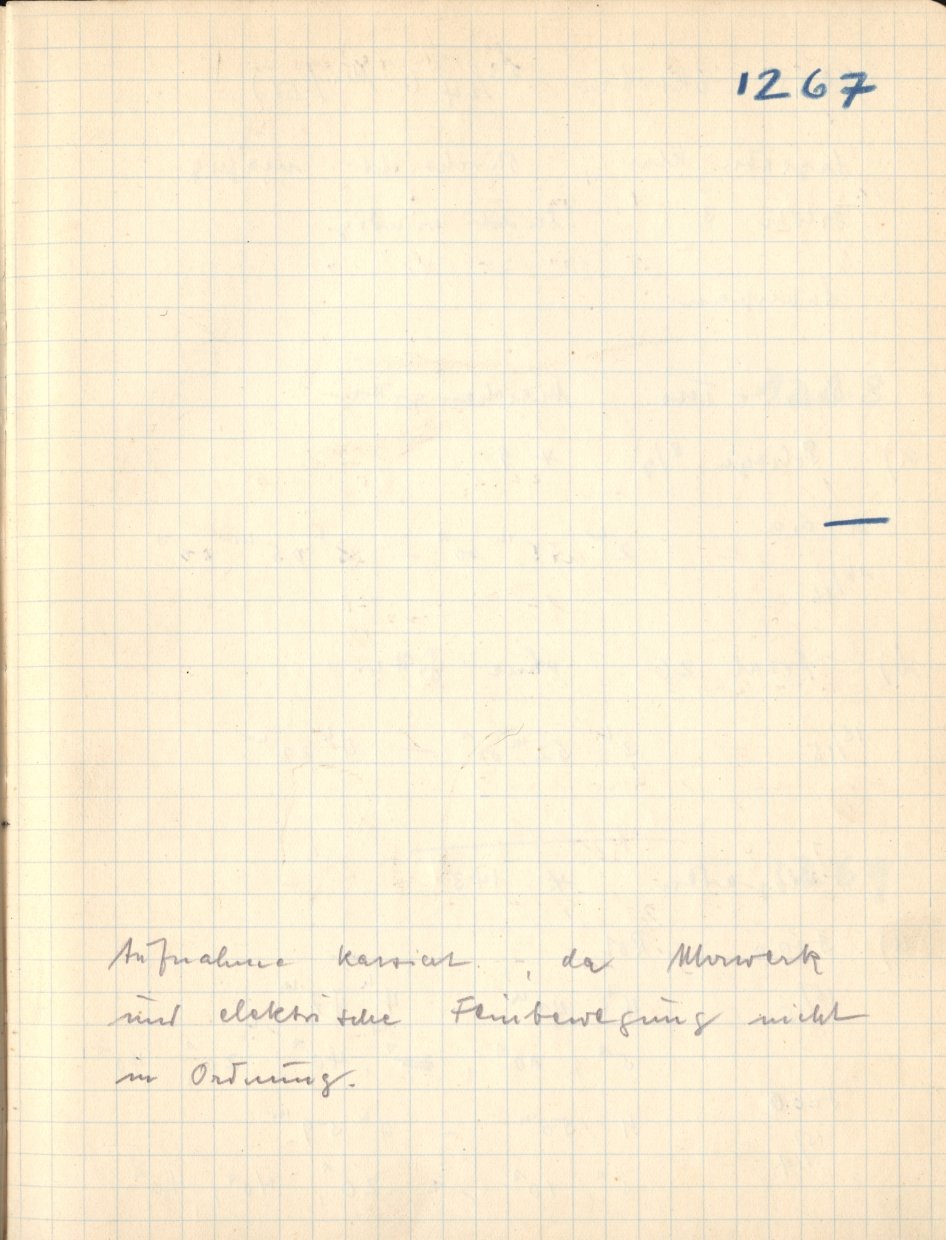 1267
—
Aufnahme kassiert, da Uhrwerk
und elektrische Feinbewegung nicht
in Ordnung.